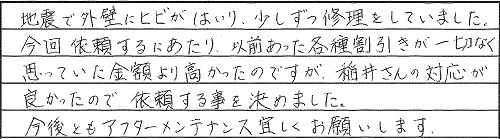 地震で外壁にヒビがはいり、少しずつ修理をしていました。
今回依頼するにあたり、以前あった各種割引きが一切なく
思っていた金額より高かったのですが、稲井さんの対応が
良かったので、依頼する事を決めました。
今後ともアフターメンテナンス宜しくお願いします。